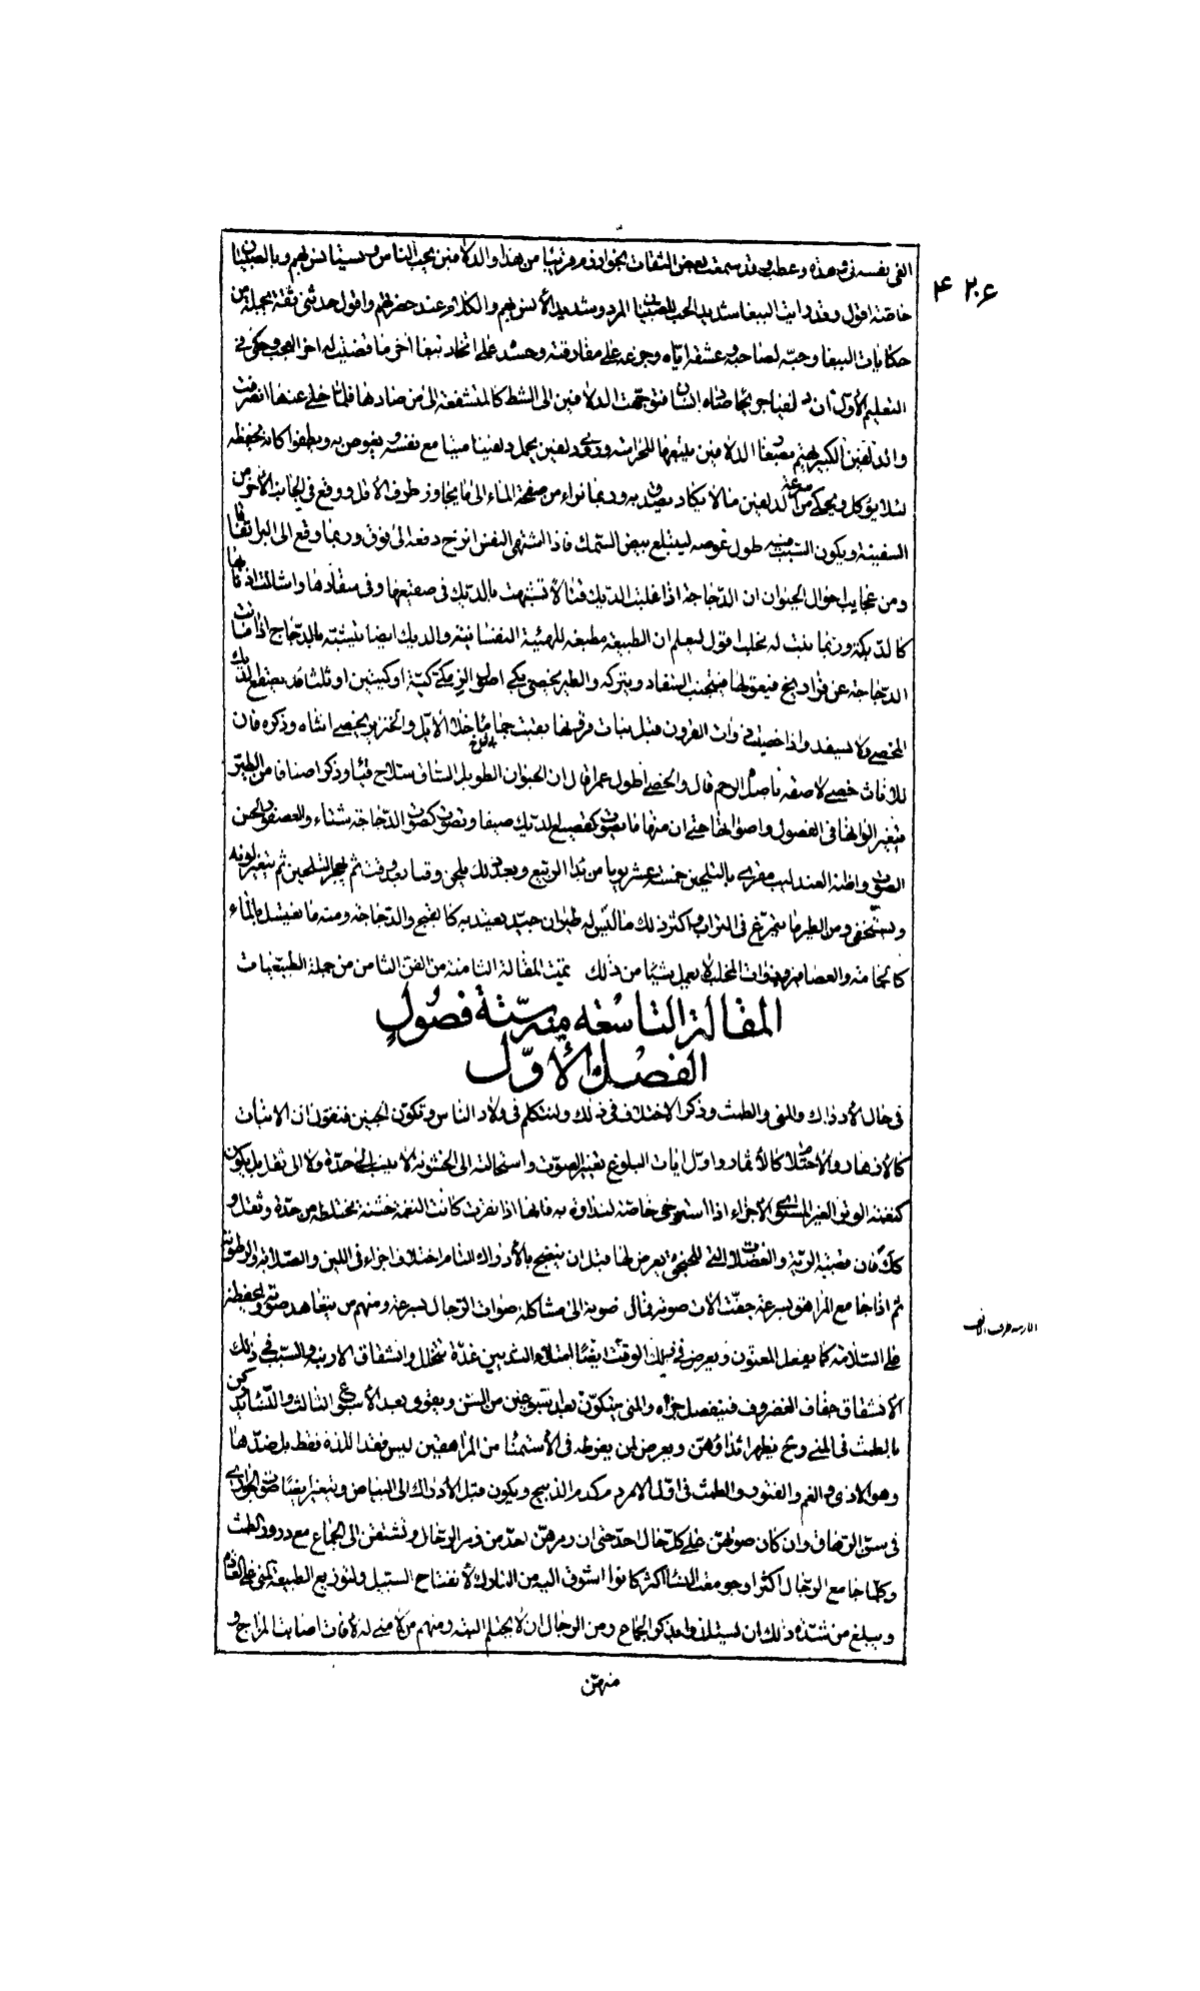 ۴۲۰۶
القى نفسه فى وهدة وعطب وقد سمعت بعض الثقات بخوارزم قريبا من هذا والدلافين يحب الناس ويستيناس بهم وبالصبيان
خاصة اقول وقد رايت الببغا شديد الحب للصبيان المرد وشديد الأنس بهم والكلام عند حضرتهم واقول حدثنى ثقة بجملة من
حكايات الببغا وحبه لصاحبه وعشقه اياه وجزعه على مفارقته وحسده على اتخاذ ببغا آخر ما قضيت له اخر العجب وحكى فى
التعليم الأول ان دلفينا جريحا صاده انسان فتوجهت الدلافين الى الشط كالمتشفعة الى من صادها فلما خلى عنها انصرفت
والدلفين الكبير يتبعها الدلافين يتبعها للحراسة ورؤى دلفين يحمل دلفينا ميتا مع نفسه يغوص به ويطفوا كانه يحفظه
لئلا يؤكل ويحكى من سرعة الدلفين ما لا يكاد يصدق به وربما نزا من صفحة الماء الى ما يجاوز طرف الدقل ووقع فى الجانب الآخر من
السفينة ويكون السبب فيه طول غوصه ليبتلع بعض السمك فاذا اشتهى النفس انزج دفعة الى فوق وربما وقع الى البر اتفاقا
ومن عجايب احوال الحيوان ان الدجاجة اذا غلبت الديك قتالا تشبهت بالديك فى صقيعها وفى سفادها واشالت اذنابها
كالديكة وربما نبت له مخلب اقول ليعلم ان الطبيعة مطيعة للهيئة النفسانية والديك ايضا يتشبه بالدجاج اذا ماتت
الدجاجة عن فراريج فيعولها فيتجنب السفاد ويتركه والطير يخصى بكى اصل الزمكى كية او كيتين او ثلثا فلا يصقع الديك
المخصى ولا يسفد واذا خصيت ذوات القرون قبل نبات قرونها بقيت جما ما خلا الأيل والخنزير يخصى انثاه وذكره فان
للاناث خصى لاصقة باصل الرحم قال والخصى اطول عمرا قال ان الحيوان الطويل الساق سلاح قيئا وذكر اصنافا من الطير
يتغير الوانها فى الفصول واصواتها حتى ان منها ما يصوت كصقيع الديك صيفا ويصوت كصوت الدجاجة شتاء والعصفور الحسن
الصوت واظنه العندليب مغرى بالتلحين خمسة عشر يوما من بدا الربيع وبعد ذلك يلحن وقتا دون وقت ثم يهجر التلحين ثم يتغير لونه
ويستخفى ومن الطير ما يتمرغ فى التراب واكثر ذلك ما ليس له طيران جيد يعتد به كالقبج والدجاجة ومنه ما يغتسل بالماء
كالحمامة والعصافير وذوات المخلب لا يعمل شيئا من ذلك تمت المقالة الثامنة من الفن الثامن من جملة الطبيعيات
المقالة التاسعة منه ستة فصول
الفصل الأول
فى حال الأدراك والمنى والطمث وذكر الاختلاف فى ذلك ولنتكلم فى ولاد الناس وتكون الجنين فنقول ان الانبات
كالأزهار والاحتلام كالأثمار واول ايات البلوغ تغير الصوت واستحالته الى الخشونة لا ينسب الى حدة ولا الى ثقل بل يكون
كنغمة الوتر الغير المستوى الأجزاء اذا استرخى خاصة لنداوة به فانها اذا نقرت كانت النغمة خشنة مختلطة من حدة وثقل و
كك فان قصبة الرية والعضلات التى للحنجرة يعرض لها قبل ان ينضج بالأدراك التام اختلاف اجزاء فى اللين والصلابة والرطوبة
ثم اذا جامع المراهق بسرعة جفت الات صوته فمال صوته الى مشاكلة اصوات الرجال بسرعة ومنهم من يتعاهد صوته ليحفظه
على السلامة كما يفعل المغنون ويعرض فى ذلك الوقت ايضا امتلاء الثديين غددة تتحلل وانشقاق الارنبة والسبب فى ذلك
الأنشقاق جفاف الغضروف فينفصل جزاه والمنى يتكون بعد اسبوعين من السن ويقوى بعد الأسبوع الثالث والنساء يدركن
بالطمث فى المنى وح يظهر ثداؤهن ويعرض لمن يفرط فى الأستمناء من المراهقين ليس فقدا للذة فقط بل ضدها
وهو الاذى والغم والفتور والطمث فى اول الامر كدم الذبيح ويكون قبل الأدراك الى البياض ويتغير ايضا صوت الجوارى
فى سن الرهاق وان كان صوتهن على كل حال احد حتى ان زمرهن احد من زمر الرجال وتشتقن الى الجماع مع درور الطمث
وكلما جامع الرجال اكثر او جومعت النساء اكثر كانوا اشوق اليه من التارك لأنفتاح السبيل ولتوزيع الطبيعة المنى على القدم
ويبلغ من شدة ذلك ان يستلذ بذكر الجماع ومن الرجال من لا يحتلم البتة ومنهم من لا منى له لآفات اصابت المزاج و
منهن